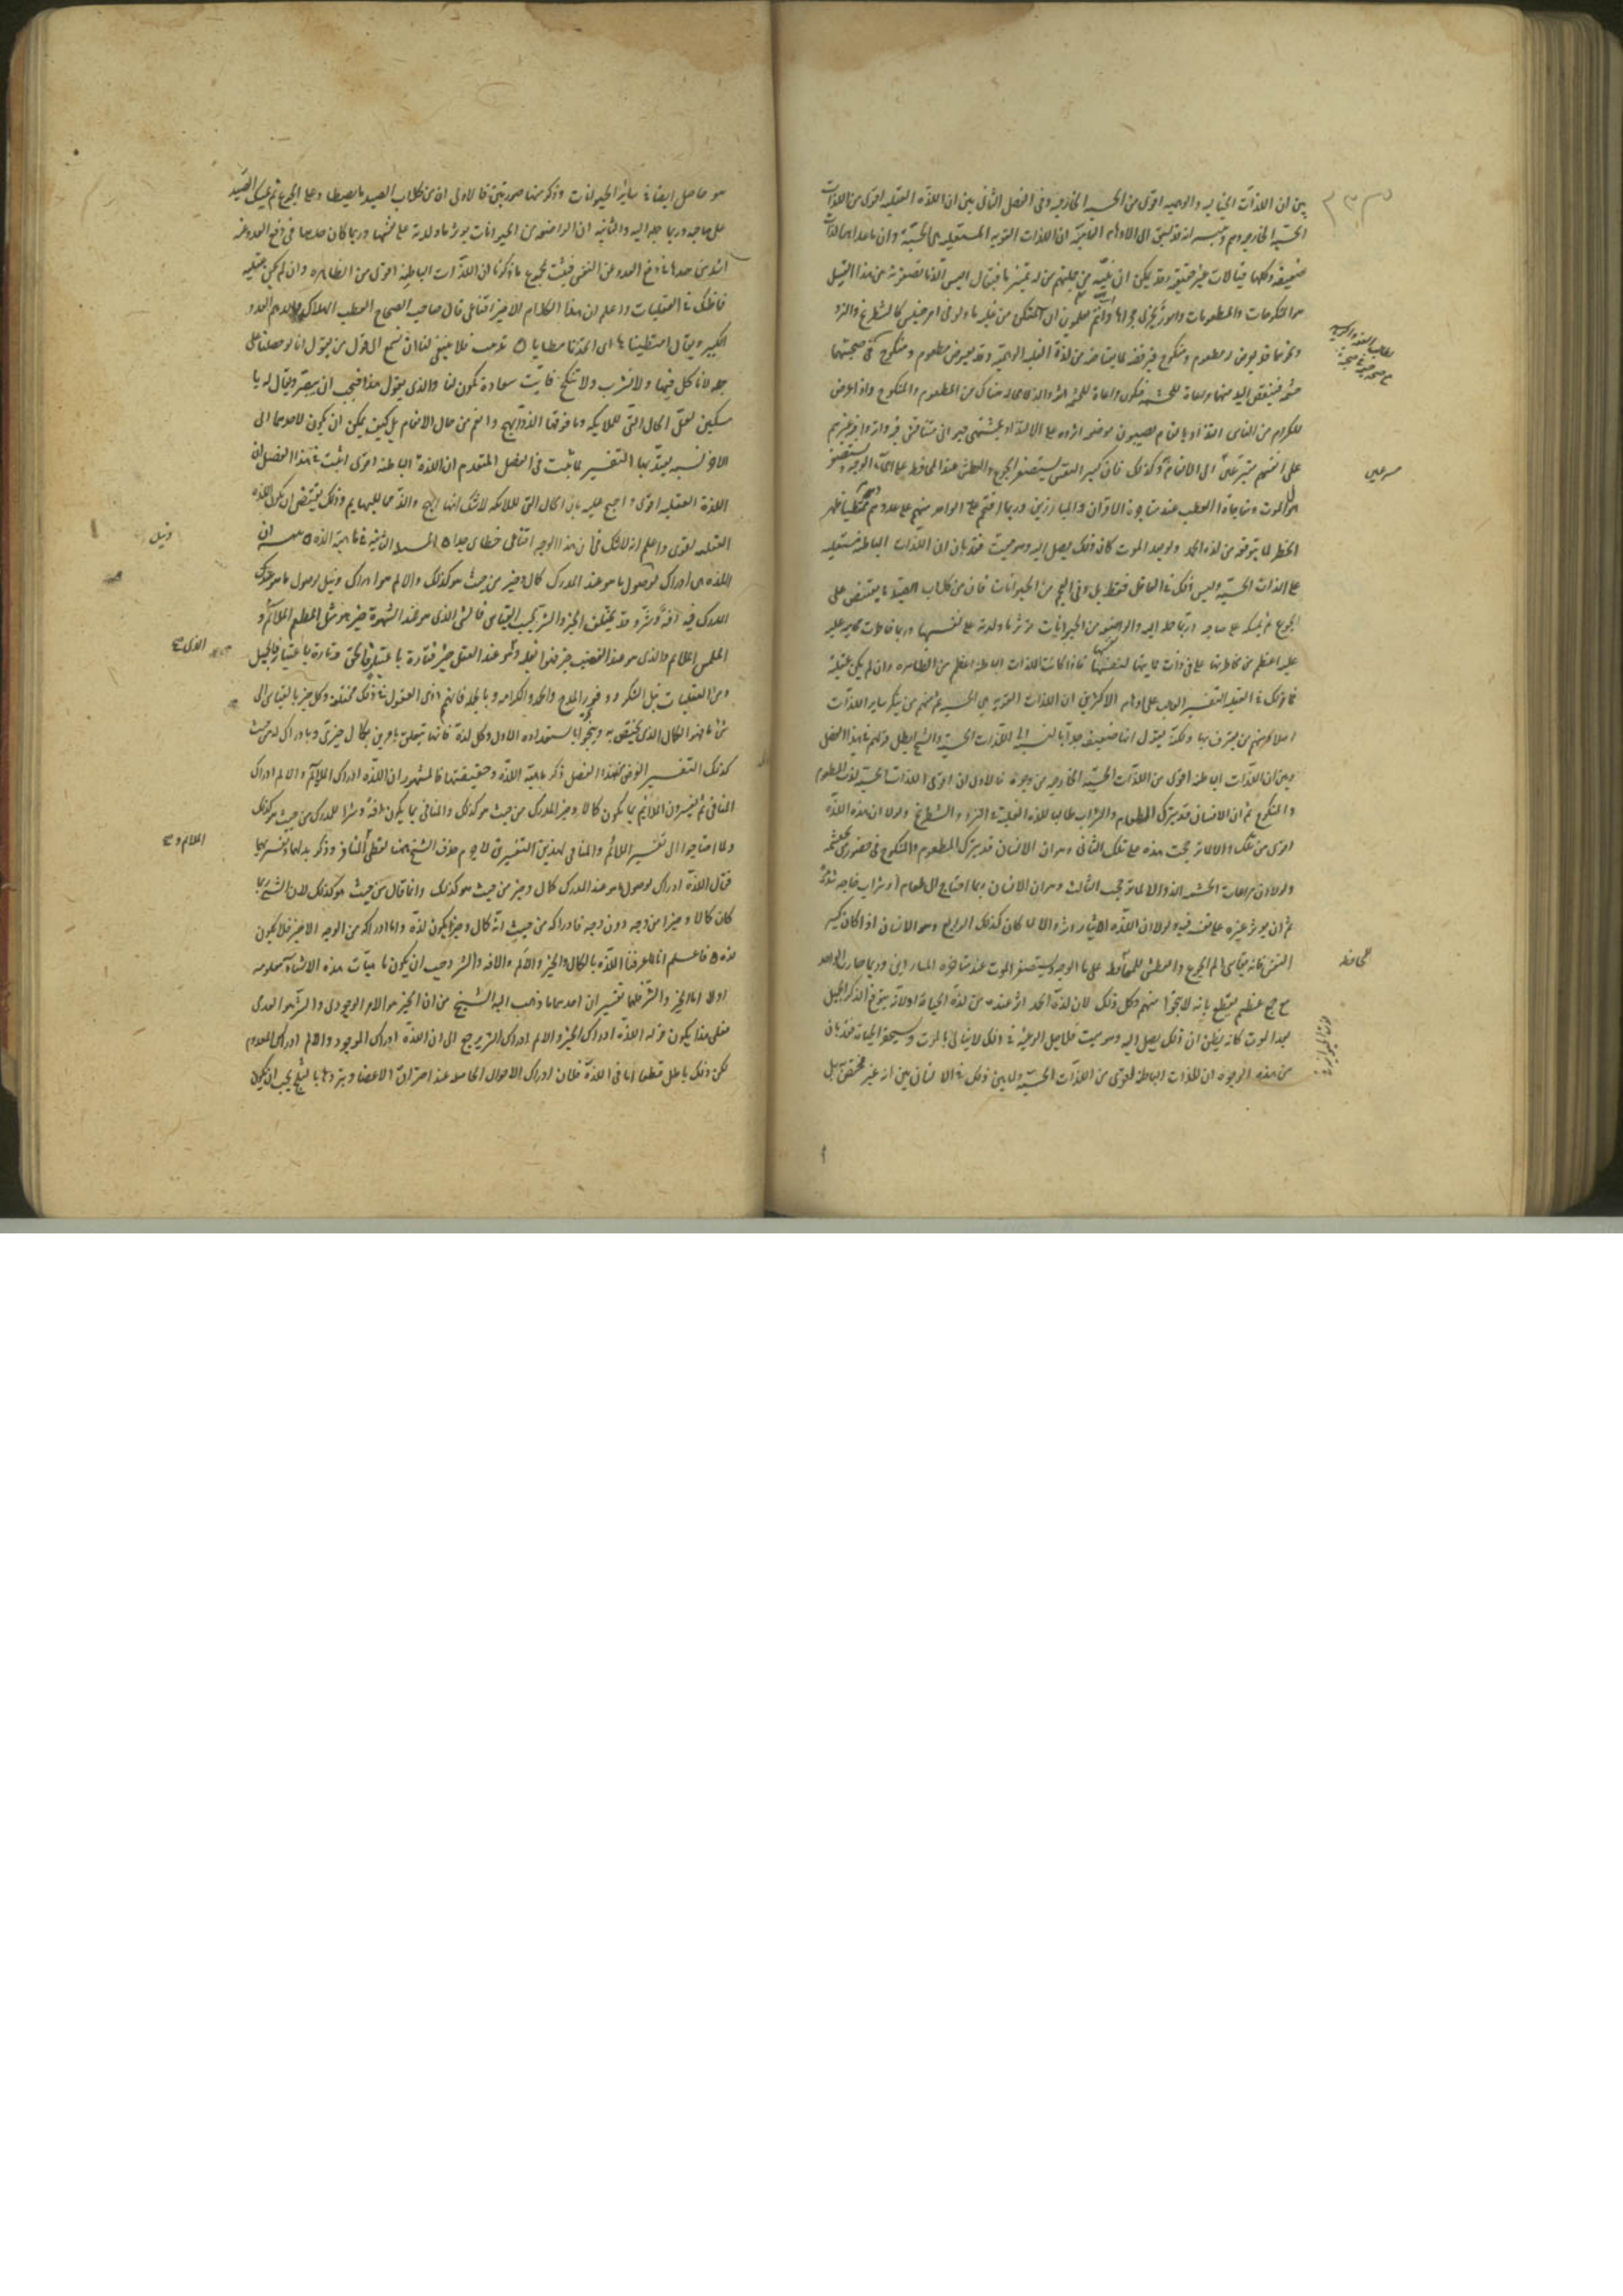 بين ان اللذات الخيالية والوهمية اقوى من الحسية الخارجية وفى الفصل الثانى بين ان اللذة العقلية اقوى من اللذات
الحسية الخارجية وهم وتنبيه انه قد يسبق الى الاوهام العامية ان اللذات القوية المستعلية هى الحسية وان ما عداها لذات
ضعيفة وكلها خيالات غير حقيقية وقد يمكن ان ينبه من جملتهم من له تمييز ما فيقال اليس الذ ما تصفونه من هذا القبيل
هو المنكوحات والمطعومات وامور تجرى مجراها وانتم تعلمون ان المتمكن من غلبة ما ولو فى امر خسيس كالشطرنج والنرد
قد يعرض له مطعوم ومنكوح فيرفضه لما يعتاضه من لذة الغلبة الوهمية وقد يعرض مطعوم ومنكوح فى صحبتهما
حشمة فينفض اليد منهما مراعاة للحشمة فيكون مراعاة الحشمة اثر والذ لا محالة هناك من المطعوم والمنكوح واذا عرض
للكرام من الناس الالتذاذ بانعام يصيبون موضعه اثروه على الالتذاذ بمشتهى حيوانى متنافس فيه واثروا فيه غيرهم
على انفسهم مسرعين الى الانعام به وكذلك فان كبير النفس يستصغر الجوع والعطش عند المحافظة على ماء الوجه ويستصغر
هول الموت ومفاجأة العطب عند مناجزة الاقران والمبارزين وربما اقتحم الواحد منهم على عدد دهم ممتطيا ظهر
الخطر لما يتوقعه من لذة الحمد ولو بعد الموت كان ذلك يصل اليه وهو ميت فقد بان ان اللذات الباطنة مستعلية
على اللذات الحسية وليس ذلك فى العاقل فقط بل وفى العجم من الحيوانات فان من كلاب الصيد ما يقتنص على
الجوع ثم يمسكه على صاحبه وربما حمله اليه والمرضعة من الحيوانات تؤثر ما ولدته على نفسها وربما خاطرت محامية عليه
اعظم من مخاطرتها فى ذات حمايتها نفسها فاذا كانت اللذات الباطنة اعظم من الظاهرة وان لم يكن عقلية
فما قولك فى العقلية التفسير الغالب على اوهام الاكثرين ان اللذات القوية هى الحسية ثم منهم من ينكر ساير اللذات
اصلا ومنهم من يعترف بها ولكنه يقول انها ضعيفة جدا بالنسبة الى اللذات الحسية والشيخ ابطل قولهم فى هذا الفصل
وبين ان اللذات الباطنة اقوى من اللذات الحسية الخارجية من وجوه فالاول ان اقوى اللذات الحسية لذة المطعوم
والمنكوح ثم ان الانسان قد يترك الطعام والشراب طالبا للذة الغلبة فى النرد والشطرنج ولولا ان هذه اللذة
اقوى من تلك والا لما ترجحت هذه على تلك الثانى وهو ان الانسان قد يترك المطعوم والمنكوح فى حضور من يحتشمه
ولولا ان مراعاة الحشمة الذ والا لما ترجحت الثالث وهو ان الانسان ربما احتاج الى طعام او شراب حاجة شديدة
ثم انه يؤثر غيره على نفسه فيه ولولا ان اللذة الايثار اقوى والا لما كان كذلك الرابع وهو الانسان اذا كان كبير
النفس فانه يقاسى الم الجوع والعطش للمحافظة على ماء الوجه ويستصغر الموت عند مناجزة المبارزين وربما حارب الواحد
مع جمع عظيم يقطع بانه لا ينجو منهم وكل ذلك لان لذة الحمد اثر عنده من لذة الحياة او لانه يتوقع الذكر الجميل
بعد الموت كانه يظن ان ذلك يصل اليه وهو ميت فلاجل الرغبة فى ذلك لا يبالى بالموت ويستحقر الحياة فقد بان
من هذه الوجوه ان اللذات الباطنة اقوى من اللذات الحسية ولما بين ذلك فى الانسان بين انه غير مختص به بل
مسرعين
للمحافظة
هو حاصل ايضا فى ساير الحيوانات وذكر منها صورتين فالاولى ان من كلاب الصيد ما يصطاد وعلى الجوع ثم يمسك الصيد
على صاحبه وربما حمله اليه والثانية ان المرضعة من الحيوانات يؤثر ما ولدته على نفسها وربما كان حرصها فى دفع العدو عنه
اشد من حرصها فى دفع العدو عن النفس فيثبت بمجموع ما ذكرنا ان اللذات الباطنة اقوى من الظاهرة وان لم يكن عقلية
فما ظنك فى العقليات واعلم ان هذا الكلام الاخير اقناعى قال صاحب الصحاح العطب الهلاك والدهم العدد
الكثير ويقال امتطيناها اى اتخذناها مطايا تذنيب فلا ينبغى لنا ان نسمع الى قول من يقول انا لو حصلنا على
جملة لا نأكل فيها ولا نشرب ولا ننكح فاية سعادة تكون لنا والذى يقول هذا فيجب ان يبصر ويقال له يا
مسكين لعل الحال التى للملائكة وما فوقها الذ وابهج وانعم من حال الانعام بل كيف يمكن ان يكون لاحدهما الى
الاخر نسبة يعتد بها التفسير لما ثبت فى الفصل المتقدم ان اللذة الباطنة اقوى اثبت فى هذا الفصل ان
اللذة العقلية اقوى واحتج عليه بان الحال التى للملائكة لا شك انها ابهج والذ مما للبهايم وذلك يقتضى ان يكون اللذة
العقلية اقوى واعلم انه لا شك فى ان هذا الوجه اقناعى خطابى جدا المسئلة الثانية فى ماهية اللذة تنبيه ان
اللذة هى ادراك ونيل لوصول ما هو عند المدرك كمال وخير من حيث هو كذلك والالم هو ادراك ونيل لوصول ما هو عند
المدرك افة وشر وقد يختلف الخير والشر بحسب القياس فالشئ الذى هو عند الشهوة خير هو مثل المطعم الملائم و
الملمس الملائم والذى هو عند الغضب خير فهو الغلبة والذى هو عند العقل خير فتارة باعتبار فالحق وتارة باعتبار فالجميل
ومن العقليات نيل الشكر ووفور المدح والحمد والكرامة وبالجملة فان همم ذوى العقول فى ذلك مختلفة وكل خير بالقياس الى
شئ ما فهو الكمال الذى يختص به وينحوه باستعداده الاول وكل لذة فانها تتعلق بامرين بكمال خيرى وبادراك له من حيث
كذلك التفسير الغرض من هذا الفصل ذكر ماهية اللذة وحقيقتها فالمشهور ان اللذة ادراك الملائم والالم ادراك
المنافى ثم يفسرون الملائم بما يكون كمالا وخيرا للمدرك من حيث هو كذلك والمنافى بما يكون افة وشرا للمدرك من حيث هو كذلك
ولما احتاجوا الى تفسير الملائم والمنافى لهذين التفسيرين لا جرم حذف الشيخ ههنا لفظى الملائم والمنافر وذكر بدلهما تفسيرهما
فقال اللذة ادراك لوصول ما هو عند المدرك كمال وخير من حيث هو كذلك وانما قال من حيث هو كذلك لان الشئ ربما
كان كمالا وخيرا من وجه دون وجه فادراكه من حيث انه كمال وخير يكون لذة واما ادراكه من الوجه الاخر فلا يكون
لذة واعلم انا لما عرفنا اللذة بالكمال والخير والالم بالافة والشر وجب ان يكون ماهيات هذه الاشياء معلومة
اولا اما الخير والشر فلهما تفسيران احدهما ما ذهب اليه الشيخ من ان الخير هو الامر الوجودى والشر هو العدمى
فعلى هذا يكون قوله اللذة ادراك الخير والالم ادراك الشر يرجع الى ان اللذة ادراك الموجود والالم ادراك المعدوم
لكن ذلك باطل قطعا اما فى اللذة فلان ادراك الاحوال الحاصلة عند احتراق الاعضاء وتبردها بالثلج يجب ان يكون
ونيل